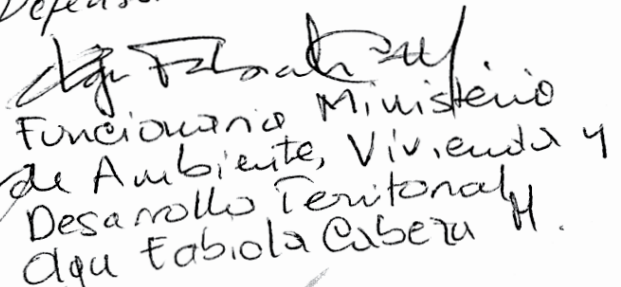 Defenso
Funcionaria Ministerio
de Ambiente, Vivienda y
Desarrollo Territorial
Olga Fabiola Cabeza M.